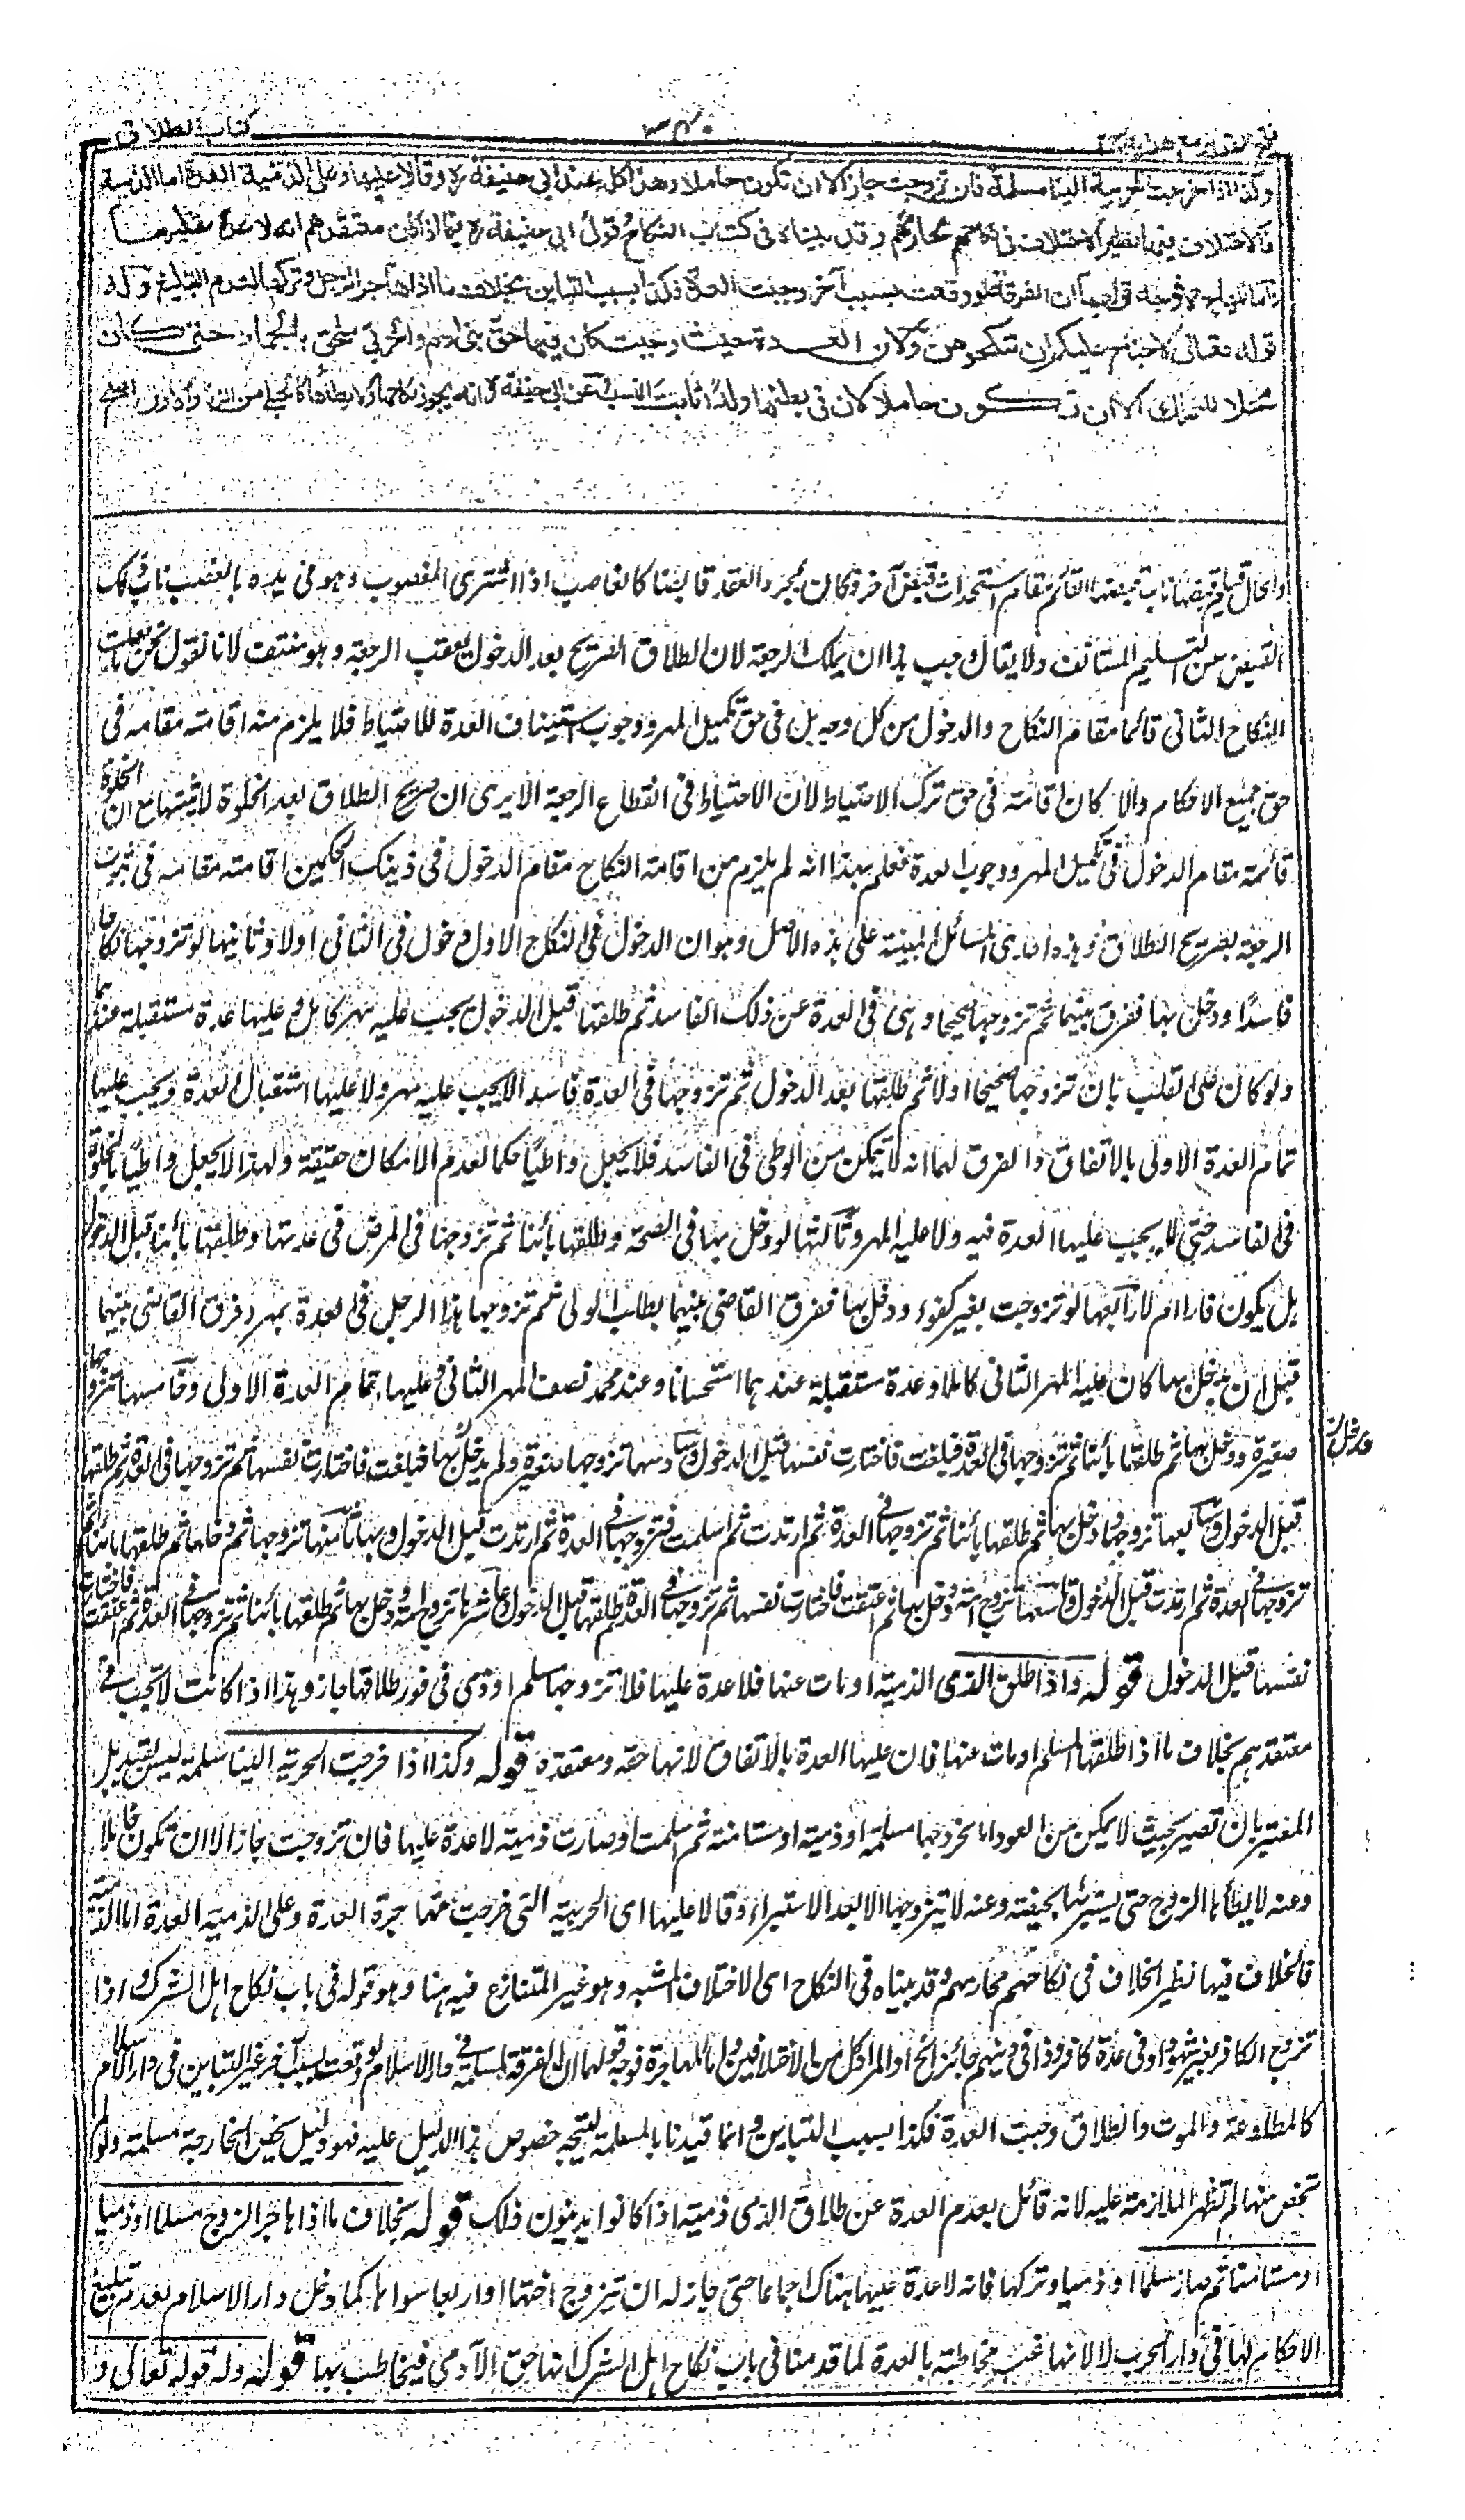 كتاب الطلاق
وكذا اذا خرجت الحربية الينا مسلمة فان تزوجت جاز الا ان تكون حاملا وهذا كله عند ابي حنيفة رح وقالا عليها وعلى الذمية العدة اما الذمية
فالاختلاف فيها نظير الاختلاف في نكاحهم محارمهم وقد بيناه في كتاب النكاح وقول ابي حنيفة رح فيما اذا كان معتقدهم انه لا عدة عليها
واما المهاجرة فوجه قولهما ان الفرقة لو وقعت بسبب آخر وجبت العدة فكذا بسبب التباين بخلاف ما اذا هاجر الرجل وتركها لعدم التبليغ وله
قوله تعالى لا جناح عليكم ان تنكحوهن ولان العدة حيث وجبت كان فيها حق بني آدم والحربي ملحق بالجماد حتى كان
محلا للتملك الا ان تكون حاملا لان في بطنها ولدا ثابت النسب وعن ابي حنيفة رح انه يجوز نكاحها ولا يطأها كالحبلى من الزنا والاول اصح
والحال قيام قبضها ناب قبضه القائم مقام استحداث قبض آخر وكان بمجرد العقد قابضا كالغاصب اذا اشترى المغصوب وهو في يده بالغصب ناب ذلك
القبض عن التسليم المستانف ولا يقال وجب اذا ان يملك الرجعة لان الطلاق الصريح بعد الدخول يعقب الرجعة وهو منتف لانا نقول نحن ما جعلت
النكاح الثاني قائما مقام النكاح والدخول من كل وجه بل في حق تكميل المهر ووجوب استيناف العدة للاحتياط فلا يلزم منه اقامته مقامه في
حق جميع الاحكام والا كان اقامته في حق ترك الاحتياط لان الاحتياط في انقطاع الرجعة الا يرى ان صريح الطلاق بعد الخلوة لا يثبتها مع ان الخلوة
قائمة مقام الدخول في تكميل المهر ووجوب العدة فعلم بهذا انه لم يلزم من اقامة النكاح مقام الدخول في ذينك الحكمين اقامته مقامه في ثبوت
الرجعة بصريح الطلاق وهذه احدى المسائل المبنية على هذه الاصل وهو ان الدخول في النكاح الاول دخول في الثاني اولا وثانيها لو تزوجها نكاحا
فاسدا ودخل بها ففرق بينهما ثم تزوجها صحيحا وهي في العدة عن ذلك الفاسد ثم طلقها قبل الدخول يجب عليه مهر كامل وعليها عدة مستقبلة عندهما
ولو كان على القلب بان تزوجها صحيحا اولا ثم طلقها بعد الدخول ثم تزوجها في العدة فاسدا لا يجب عليه مهر ولا عليها استقبال العدة ويجب عليها
تمام العدة الاولى بالاتفاق والفرق لهما انه لا يتمكن من الوطى في الفاسد فلا يجعل واطيا حكما لعدم الامكان حقيقة ولهذا لا يجعل واطيا بالخلوة
في الفاسد حتى لا يجب عليها العدة فيه ولا عليه المهر وثالثها لو دخل بها في الصحة وطلقها بائنا ثم تزوجها في المرض في عدتها وطلقها بائنا قبل الدخول
بل يكون فارا ام لا رابعها لو تزوجت بغير كفوء ودخل بها ففرق القاضي بينهما بطلب الولى ثم تزوجها هذا الرجل في العدة بمهر وفرق القاضي بينهما
قبل ان يدخل بها كان عليه المهر الثاني كاملا وعدة مستقبلة عندهما استحسانا وعند محمد نصف المهر الثاني وعليها تمام العدة الاولى وخامسها تزوجها
صغيرة ودخل بها ثم طلقها بائنا ثم تزوجها في العدة فبلغت فاختارت نفسها قبل الدخول وسادسها تزوجها صغيرة ولم يدخل بها فبلغت فاختارت نفسها ثم تزوجها في العدة ثم طلقها
قبل الدخول وسابعها تزوجها ودخل بها ثم طلقها بائنا ثم تزوجها في العدة ثم ارتدت ثم اسلمت فتزوجها في العدة ثم ارتدت قبل الدخول بها وثامنها تزوجها ودخلها ثم طلقها بائنا ثم
تزوجها في العدة ثم ارتدت قبل الدخول وتاسعها تزوج امة ودخل بها ثم اعتقت فاختارت نفسها ثم تزوجها في العدة ثم طلقها قبل الدخول وعاشرها تزوج امة ودخل بها ثم طلقها بائنا ثم تزوجها في العدة ثم اعتقت فاختارت
نفسها قبل الدخول قوله واذا طلق الذمى الذمية او مات عنها فلا عدة عليها فلا تزوجها مسلم او ذمى في فور طلاقها جاز وهذا اذا كانت لا تجب في
معتقدهم بخلاف ما اذا طلقها المسلم او مات عنها فان عليها العدة بالاتفاق لانها حقه ومعتقدة قوله وكذا اذا خرجت الحربية الينا مسلمة ليس بقيد بل
المعتبر بان تصير بحيث لا يمكن من العود اما بخروجها مسلمة او ذمية او مستامنة ثم اسلمت او صارت ذمية لا عدة عليها فان تزوجت جاز الا ان تكون حاملا
وعنه لا يطأها الزوج حتى يستبرئها بحيضة وعنه لا يتزوجها الا بعد الاستبراء وقالا عليها اى الحربية التي خرجت مهاجرة العدة وعلى الذمية العدة اما الذمية
فالخلاف فيها نظير الخلاف في نكاحهم محارمهم وقد بيناه في النكاح اى الاختلاف المشبه وهو غير المتنازع فيه هنا وهو قوله في باب نكاح اهل الشرك واذا
تزوج الكافر بغير شهود او في عدة كافر وذا في دينهم جائز الخ او المراد كل من الاختلافين واما المهاجرة فوجه قولهما ان الفرقة في دار الاسلام لو وقعت بسبب آخر غير التباين في دار الاسلام
كالمطاوعة والموت والطلاق وجبت العدة فكذا بسبب التباين وانما قيدنا بالمسلمة لنتيجه خصوص هذا الدليل عليه فهو دليل يخص الخارجة مسلمة ولو لم
تخص منها لم تظهر الملازمة عليه لانه قائل بعدم العدة عن طلاق الذمى ذمية اذا كانوا يدينون ذلك قوله بخلاف ما اذا هاجر الزوج مسلما او ذميا
او مستامنا ثم صار مسلما او ذميا وتركها فانه لا عدة عليها هناك اجماعا حتى جاز له ان يتزوج اختها او اربعا سواها كما دخل دار الاسلام لعدم تبليغ
الاحكام لها في دار الحرب لا لانها غير مخاطبة بالعدة لما قدمنا في باب نكاح اهل الشرك انها حق الآدمى فيخاطب بها قوله وله قوله تعالى و